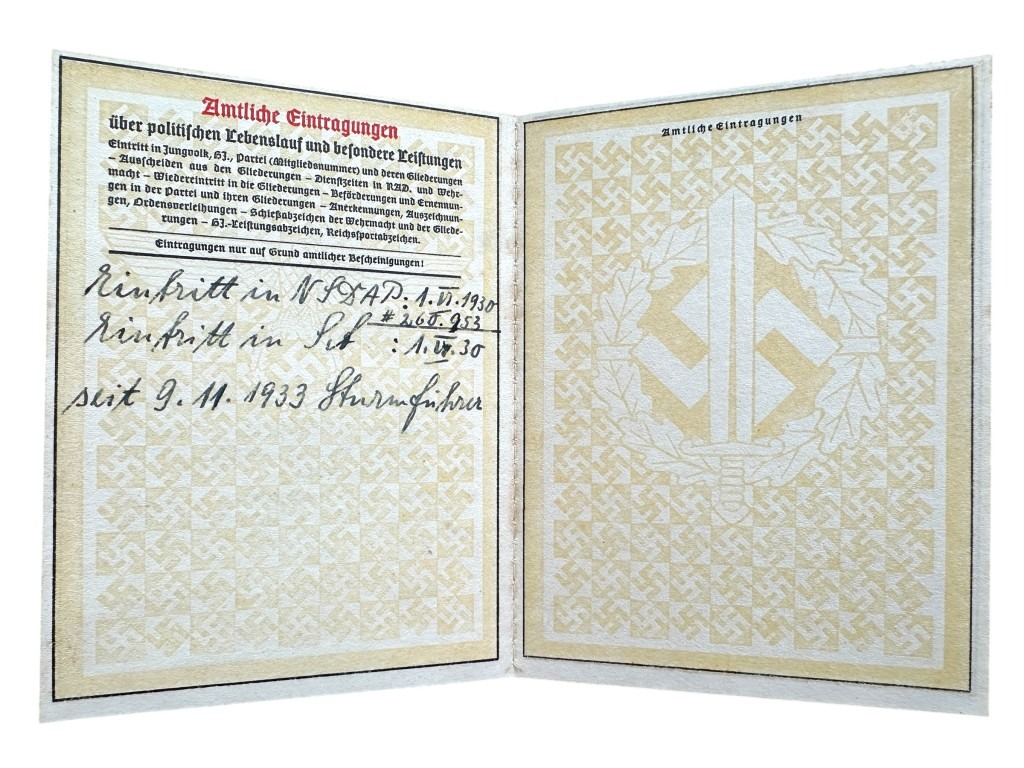 Amtliche Eintragungen
über politischen Lebenslauf und besondere Leistungen
Eintritt in Jungvolk, HJ., Partei (Mitgliedsnummer) und deren Gliederungen
– Ausscheiden aus den Gliederungen – Dienstzeiten in RAD. und Wehr-
macht – Wiedereintritt in die Gliederungen – Beförderungen und Ernennun-
gen in der Partei und ihren Gliederungen – Anerkennungen, Auszeichnun-
gen, Ordensverleihungen – Schießabzeichen der Wehrmacht und der Gliede-
rungen – HJ.-Leistungsabzeichen, Reichssportabzeichen.
Eintragungen nur auf Grund amtlicher Bescheinigungen!
Eintritt in NSDAP: 1.VI.1930
# 260.953
Eintritt in SA : 1.VI.30
seit 9.11.1933 Sturmführer
Amtliche Eintragungen